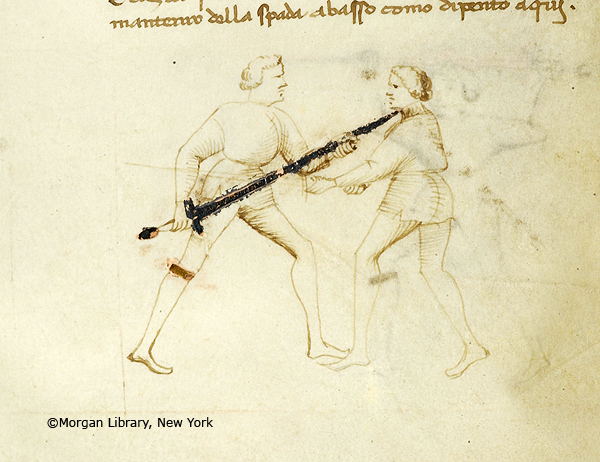 della spada abasso como dipento aqui.
©Morgan Library, New York